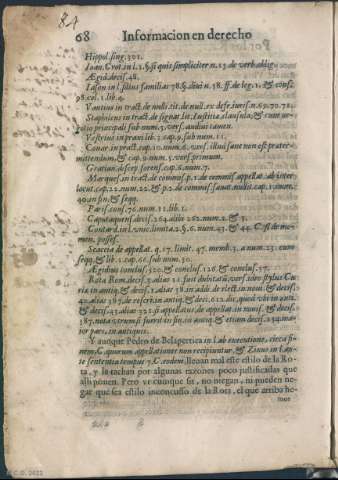 84
68 Informacion en derecho
Hippol. sing. 301.
Ioan. Crot. in l. 1. §. si quis simpliciter n. 13. de verb. oblig.
Ægid. decis. 48.
Iason in l. filius familias 78. §. diui n. 58. ff. de leg. 1. &
98. col. 1. lib. 4.
Vantius in tract. de nullit. tit. de null. ex defe. iuris. n. 69. 70. 78.
Staphileus in tract. de signat. lit. Iustitia, clausula, & cum
principali sub num. 3. vers. auditus tamen.
Vestrius in praxi lib. 3. cap. 9. sub num. 1.
Conar. in pract. cap. 10. num. 6. vers. illud sane non est prater-
mittendum, & cap. 9. num. 5. vers. primum.
Gratian. discep. forens. cap. 6. num. 7.
Marques. in tract. de commis. p. 1. de commis. appellat. ab inter-
locut. cap. 22. num. 22. & p. 2. de commis. causæ nullit. cap. 1. num.
40. in fin. & seqq.
Paris. cons. 76. num. 11. lib. 1.
Caputaquens. decis. 264. aliàs 262. num. 2. & 3.
Contard. in l. vnic. limita. 2. §. 6. num. 43. & 44. C. si de mo-
men. posses.
Scaccia de appellat. q. 17. limit. 47. memb. 3. a num. 23. cum
seqq. & lib. 1. cap. 66. sub num. 30.
Ægidius conclus. 520. & conclus. 126. & conclus. 57.
Rota Rom. decis. 3. aliàs 21. fuit dubitatũ, vers. ideo stylus Cu-
ria in antiq. & decis. 2. aliàs 38. in addit. de elect. in noui. & decis.
40. aliàs 387. de rescri. in antiq. & deci. 612.
& decis. 43. aliàs 321. si appellatus de appellat. in nouis. & decis.
387. nota
ior pars, in antiquis.
Y aunque Pedro de Belapertica in l. ab executione, circa fi-
nem, C. quorum appellationes non recipiuntur, & Zinus in l. an-
te sententiæ tempus 7. C. eodem, lleuan mal este estilo de la Ro-
ta, y la tachan por algunas razones poco justificadas que
allí ponen. Pero vt cunque sit, no niegan, ni pueden ne-
gar que sea estilo inconcusso de la Rota, el que arriba he-
mos